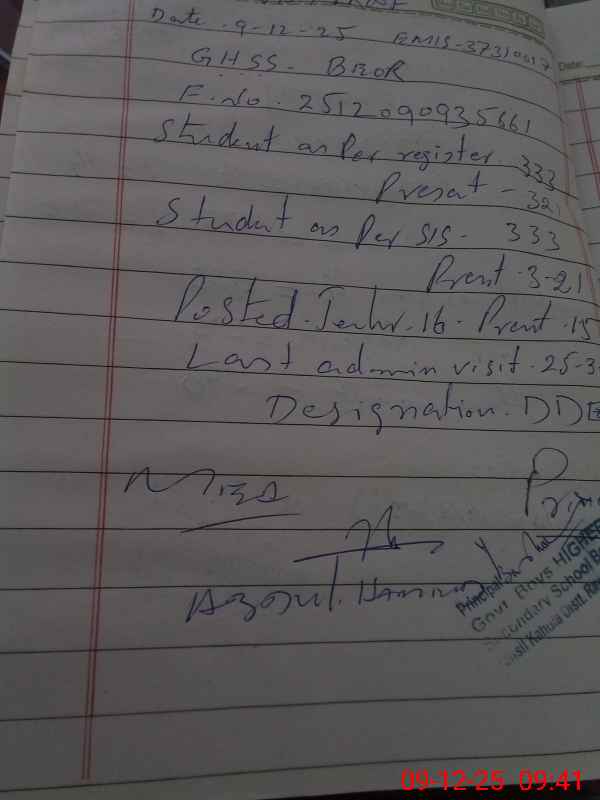 Date . 9-12-25 EMIS-37310017
GHSS. BEOR
F.No. 2512090935661
Student as Per register. 333
Presat - 321
Student as Per SIS - 333
Prent . 3-21
Posted. Teahr. 16 - Prent . 15
Last admin visit . 25-3
Designation. DDE
MIEA
Abdul.
Prin
Principal
Govt. Boys HIGHER
Secondary School Be
Kahuta Distt. Ra
09-12-25 09:41